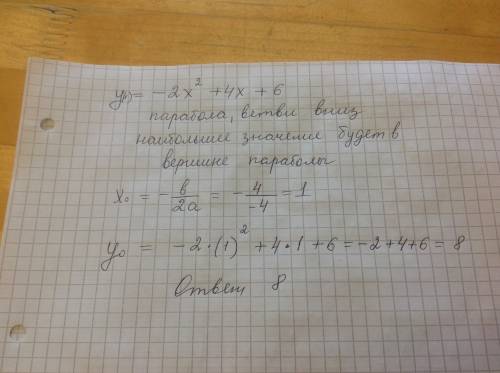 y(x) = -2x² + 4x + 6
парабола, ветви вниз
наибольшее значение будет в
вершине параболы
x₀ = -b/2a = -4/-4 = 1
y₀ = -2·(1)² + 4·1 + 6 = -2+4+6 = 8
Ответ 8